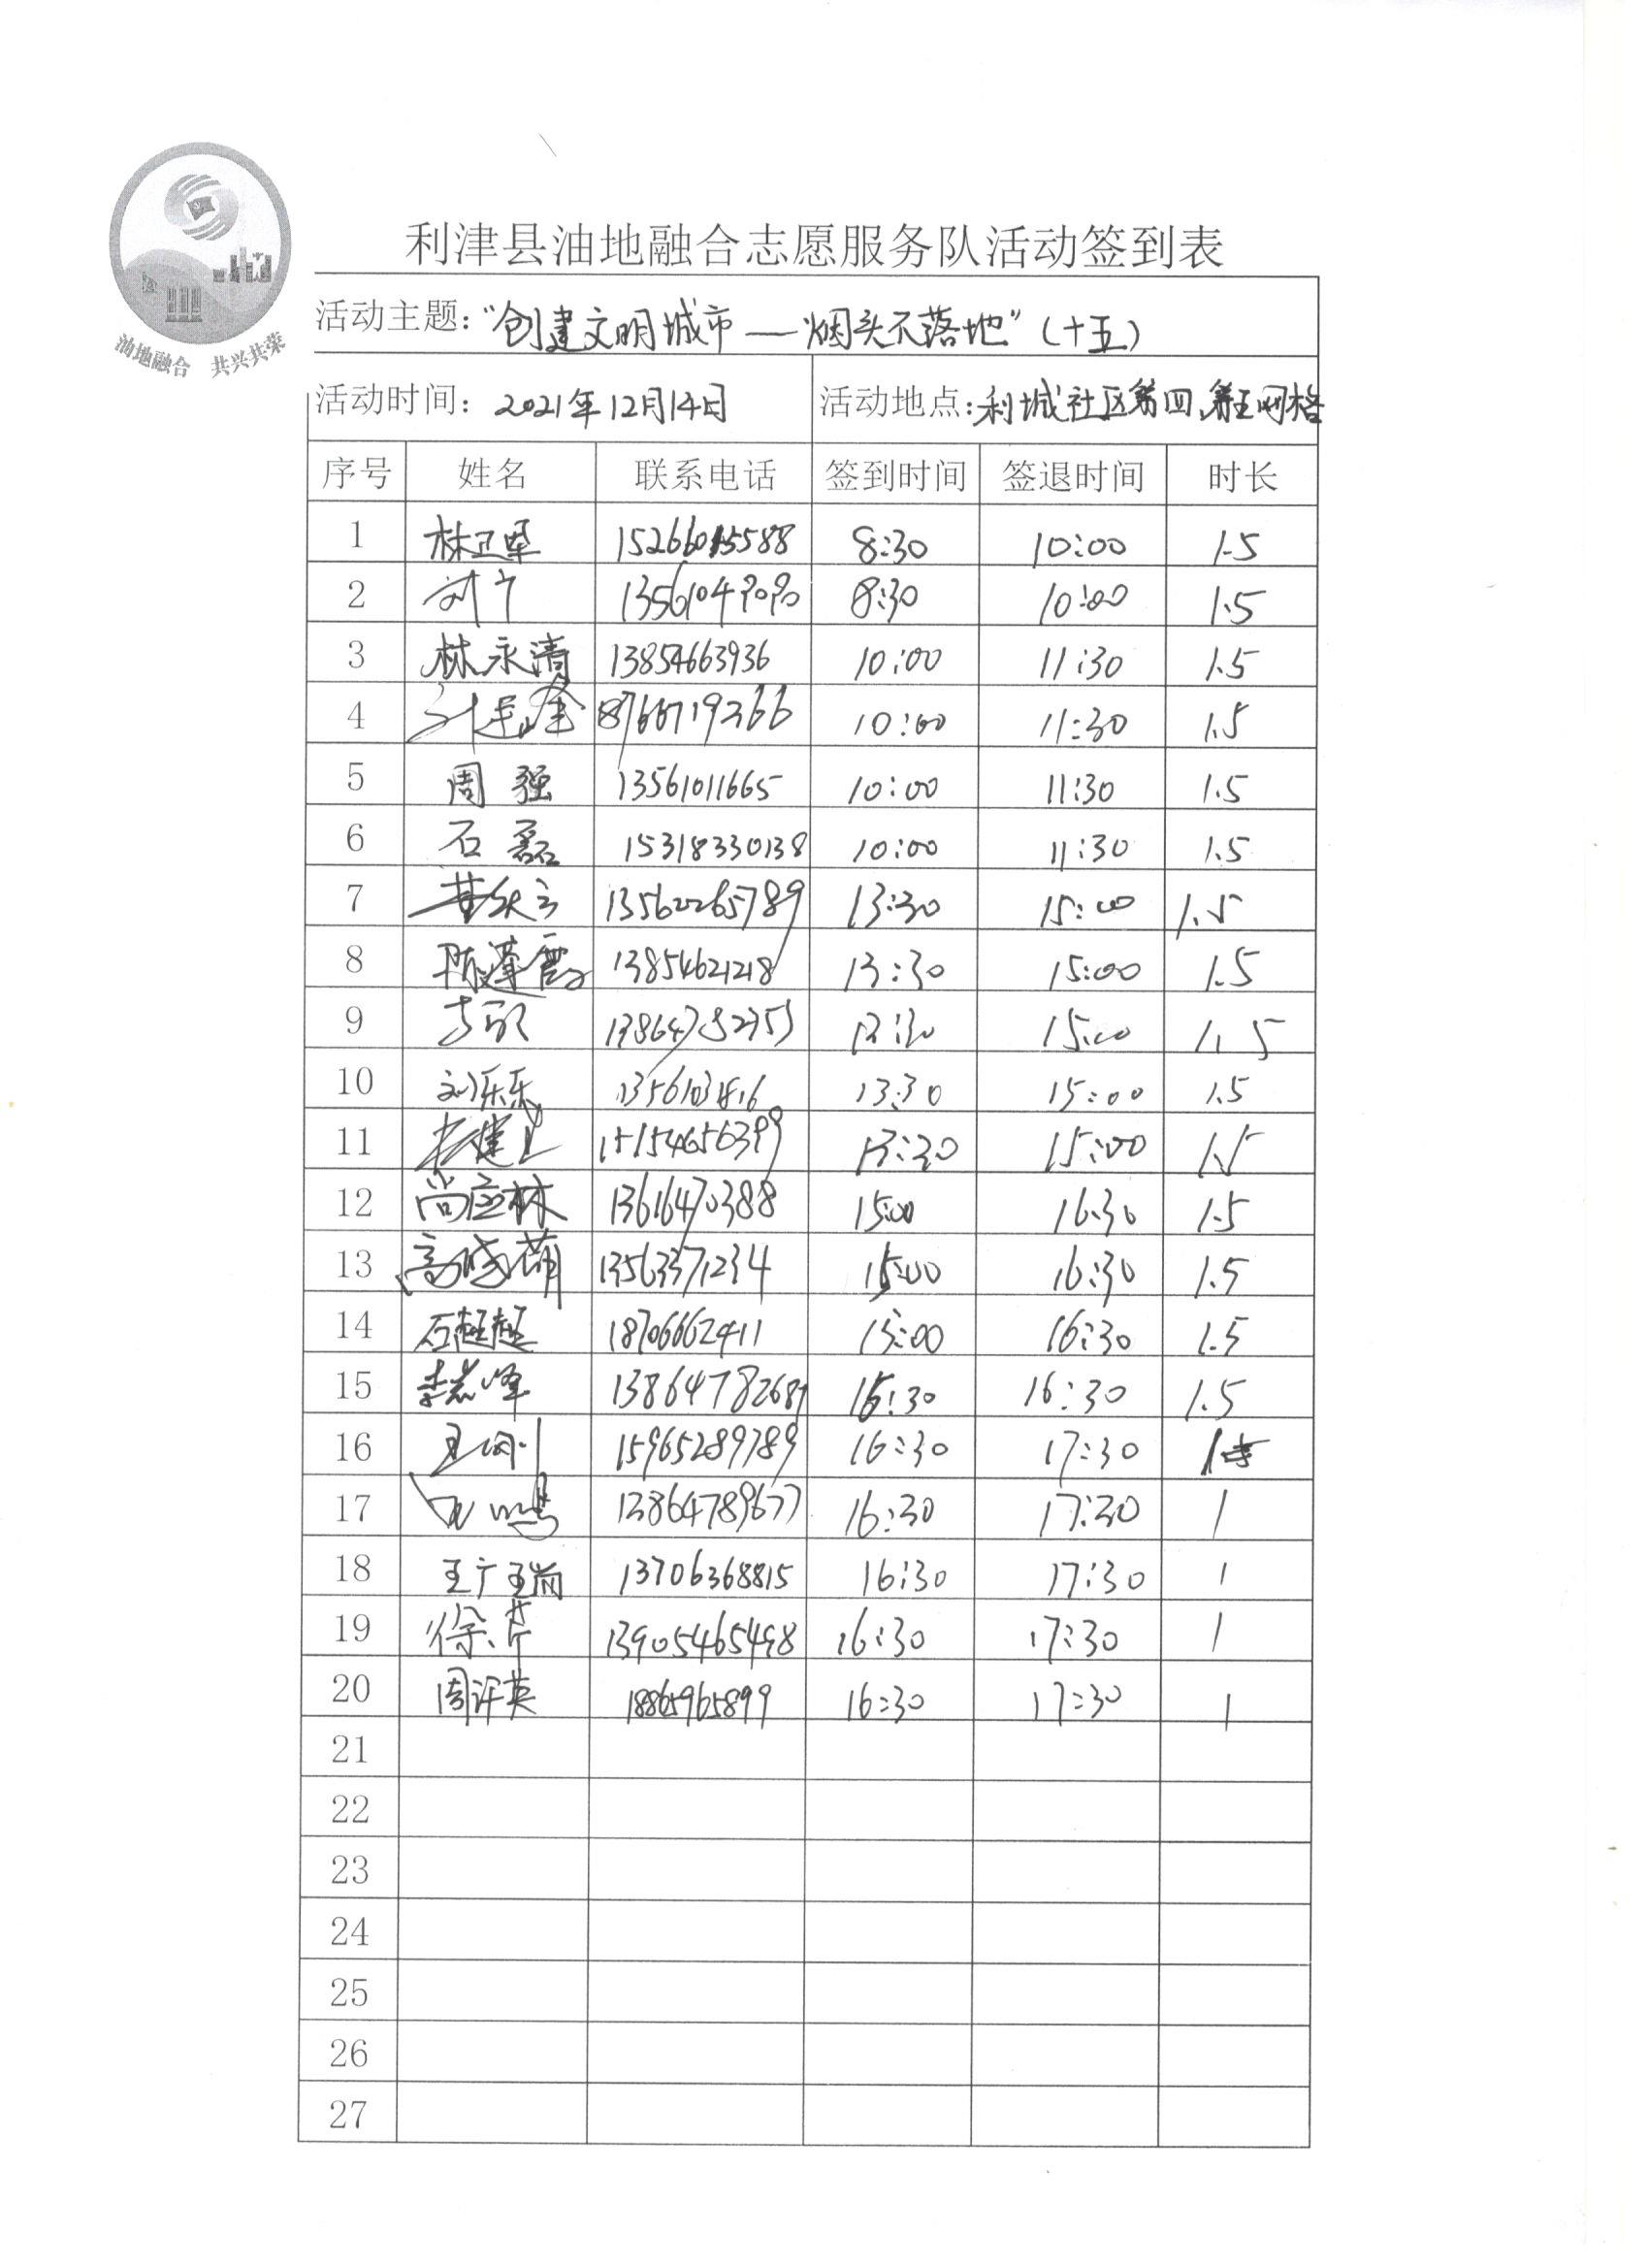 利津县油地融合志愿服务队活动签到表
油地融合 共兴共荣
活动主题：“创建文明城市——烟头不落地”（十五）
活动时间：2021年12月14日 活动地点：利城社区第四、第五网格
序号 姓名 联系电话 签到时间 签退时间 时长
1 林卫军 15266015588 8:30 10:00 1.5
2 刘宁 8:30 10:00 1.5
3 林永清 13854663936 10:00 11:30 1.5
4 18766719366 10:00 11:30 1.5
5 周强 13561011665 10:00 11:30 1.5
6 石磊 15318330138 10:00 11:30 1.5
7 13562265789 13:30 15:00 1.5
8 陈蓬霞 13854621218 13:30 15:00 1.5
9 13:30 15:00 1.5
10 刘乐乐 13:30 15:00 1.5
11 15154656399 13:30 15:00 1.5
12 尚应林 13616470388 15:00 16:30 1.5
13 高晓萌 13563371234 15:00 16:30 1.5
14 石超越 18706662411 15:00 16:30 1.5
15 李志峰 13864782687 16:30 1.5
16 王刚 15965289789 16:30 17:30 1
17 13864789677 16:30 17:30 1
18 王广瑞 13706368815 16:30 17:30 1
19 徐芹 13905465498 16:30 17:30 1
20 周评英 18865965899 16:30 17:30 1
21
22
23
24
25
26
27